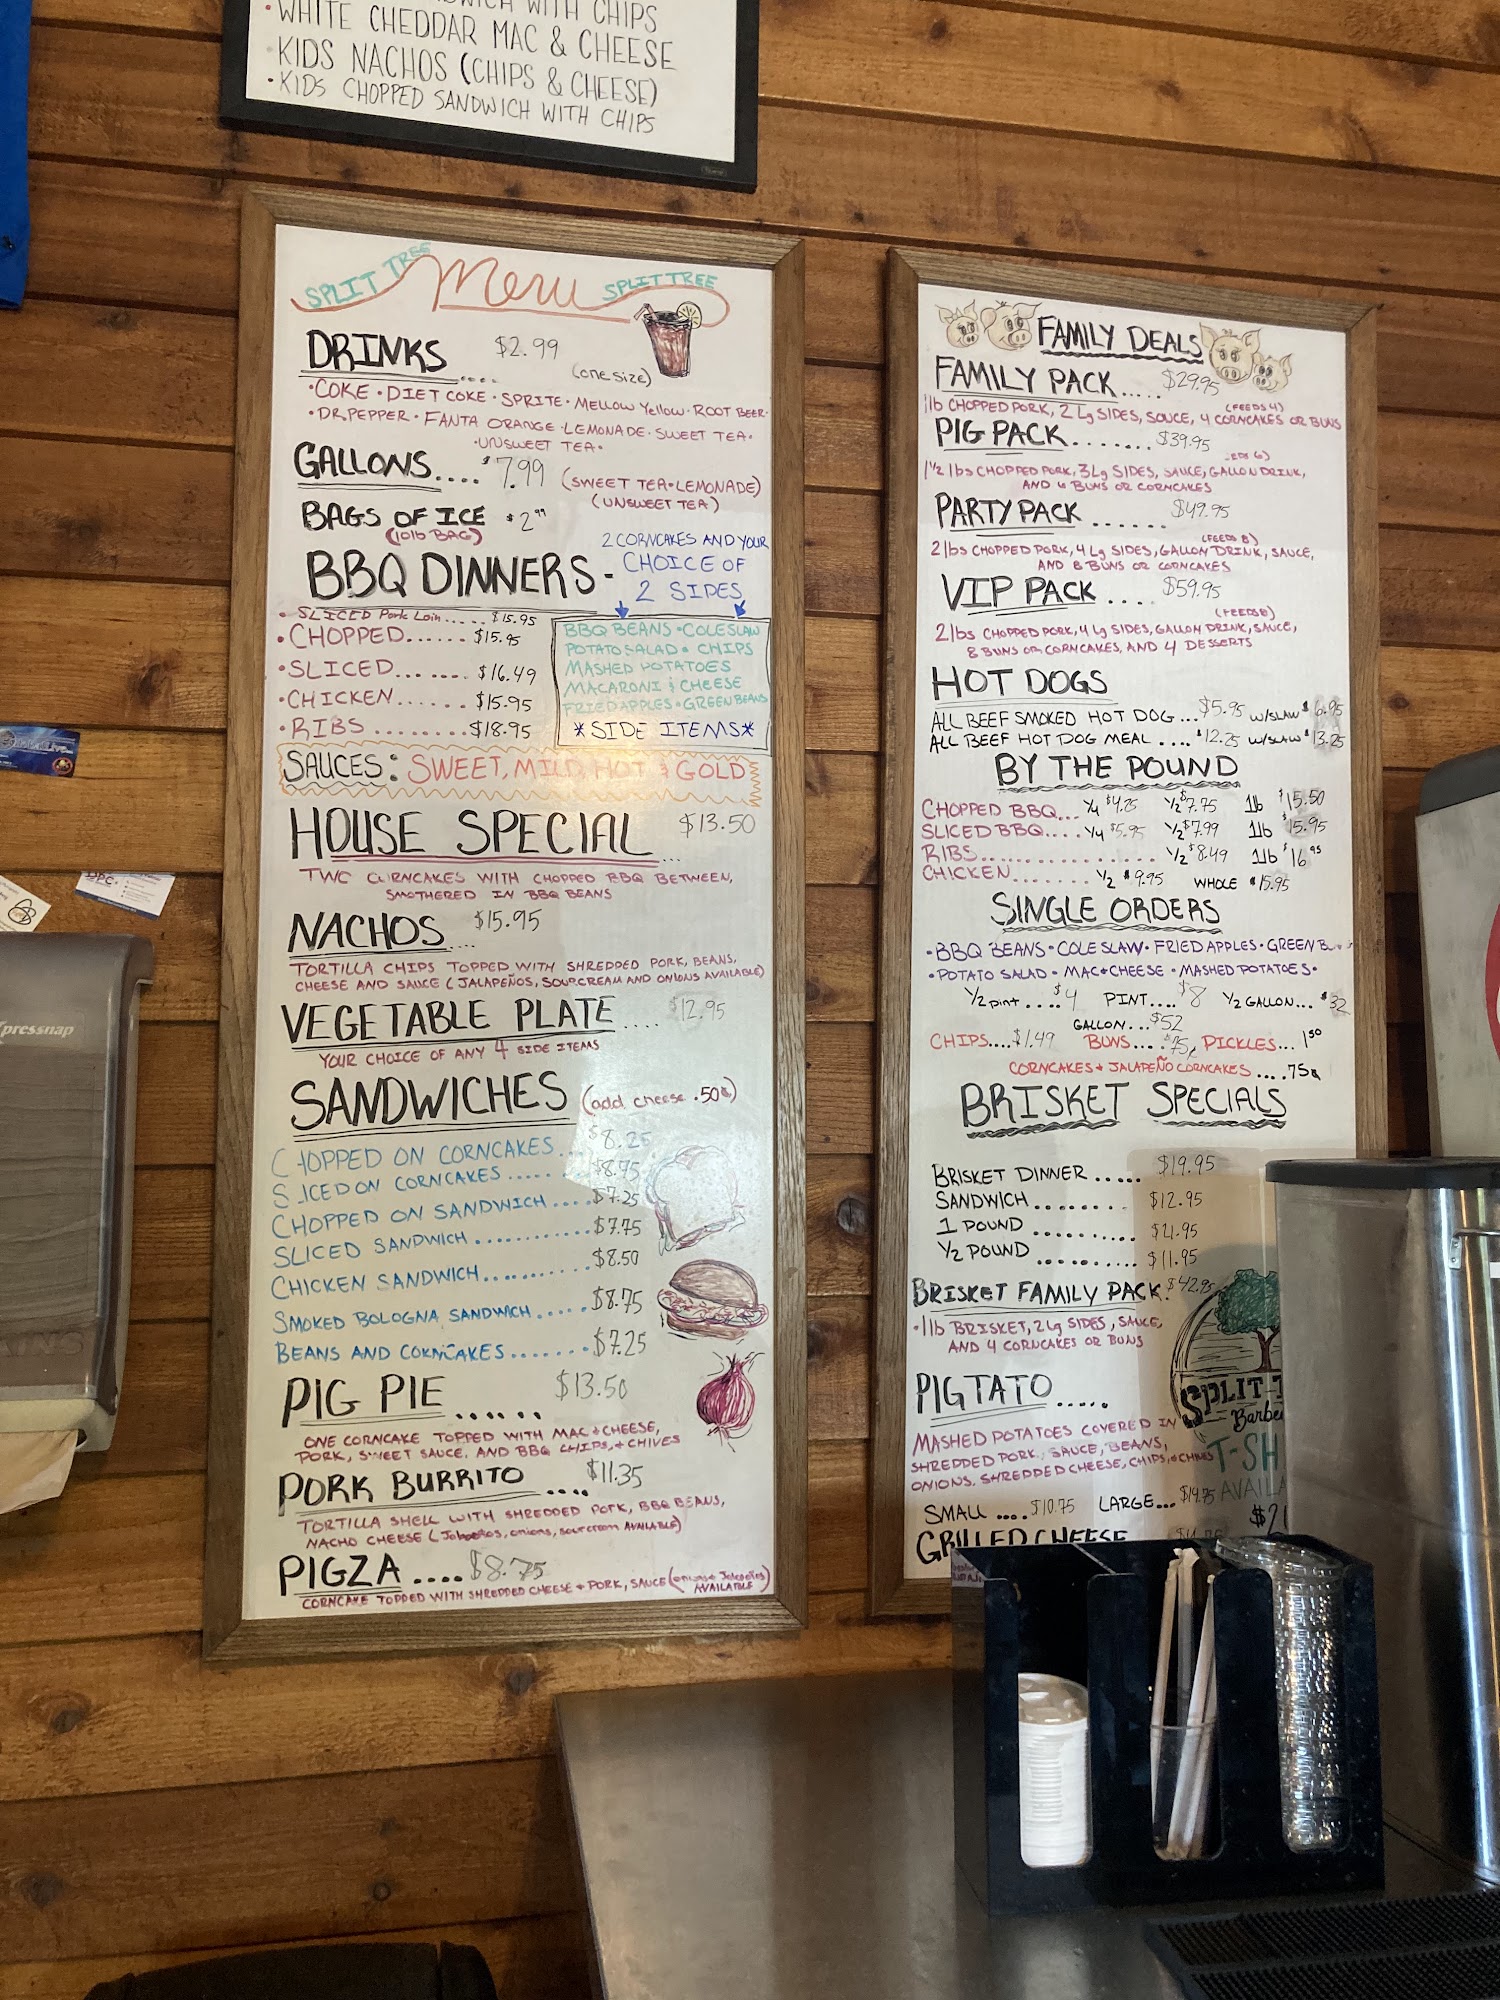 WICH WITH CHIPS
• WHITE CHEDDAR MAC & CHEESE
• KIDS NACHOS (CHIPS & CHEESE)
• KIDS CHOPPED SANDWICH WITH CHIPS
SPLIT TREE Menu SPLIT TREE
DRINKS.... $2.99 (one size)
• COKE • DIET COKE • SPRITE • MELLOW YELLOW • ROOT BEER •
• DR.PEPPER • FANTA ORANGE • LEMONADE • SWEET TEA •
• UNSWEET TEA •
GALLONS.... $7.99 (SWEET TEA • LEMONADE)
(UNSWEET TEA)
BAGS OF ICE $2.99
(10lb BAG)
BBQ DINNERS - 2 CORNCAKES AND YOUR
CHOICE OF
2 SIDES
• SLICED Pork Loin..... $15.95
• CHOPPED...... $15.95
• SLICED....... $16.49
• CHICKEN...... $15.95
• RIBS ......... $18.95
BBQ BEANS • COLESLAW
POTATO SALAD • CHIPS
MASHED POTATOES
MACARONI & CHEESE
FRIED APPLES • GREEN BEANS
*SIDE ITEMS*
SAUCES: SWEET, MILD, HOT & GOLD
HOUSE SPECIAL... $13.50
TWO CORNCAKES WITH CHOPPED BBQ BETWEEN,
SMOTHERED IN BBQ BEANS
NACHOS.... $15.95
TORTILLA CHIPS TOPPED WITH SHREDDED PORK, BEANS,
CHEESE AND SAUCE (JALAPEÑOS, SOUR CREAM AND ONIONS AVAILABLE)
VEGETABLE PLATE .... $12.95
YOUR CHOICE OF ANY 4 SIDE ITEMS
SANDWICHES (add cheese .50¢)
CHOPPED ON CORNCAKES... $8.25
SLICED ON CORNCAKES ...... $8.75
CHOPPED ON SANDWICH ..... $7.25
SLICED SANDWICH ............ $7.75
CHICKEN SANDWICH........... $8.50
SMOKED BOLOGNA SANDWICH ..... $8.75
BEANS AND CORNCAKES....... $7.25
PIG PIE ...... $13.50
ONE CORNCAKE TOPPED WITH MAC & CHEESE,
PORK, SWEET SAUCE, AND BBQ CHIPS, & CHIVES
PORK BURRITO .... $11.35
TORTILLA SHELL WITH SHREDDED PORK, BBQ BEANS,
NACHO CHEESE (Jalapeños, onions, sour cream AVAILABLE)
PIGZA .... $8.75
CORNCAKE TOPPED WITH SHREDDED CHEESE & PORK, SAUCE (onions & Jalapeños AVAILABLE)
FAMILY DEALS
FAMILY PACK.... $29.95
(FEEDS 4)
1lb CHOPPED PORK, 2 Lg SIDES, SAUCE, 4 CORNCAKES OR BUNS
PIG PACK....... $39.95
1 1/2 lbs CHOPPED PORK, 3 Lg SIDES, SAUCE, GALLON DRINK,
AND 6 BUNS OR CORNCAKES
PARTY PACK ...... $49.95
(FEEDS 8)
2 lbs CHOPPED PORK, 4 Lg SIDES, GALLON DRINK, SAUCE,
AND 8 BUNS OR CORNCAKES
VIP PACK .... $59.95
(FEEDS 8)
2 lbs CHOPPED PORK, 4 Lg SIDES, GALLON DRINK, SAUCE,
8 BUNS OR CORNCAKES, AND 4 DESSERTS
HOT DOGS
ALL BEEF SMOKED HOT DOG ... $5.95 W/SLAW $6.95
ALL BEEF HOT DOG MEAL .... $12.25 W/SLAW $13.25
BY THE POUND
CHOPPED BBQ... 1/4 $4.25 1/2 $7.75 1lb $15.50
SLICED BBQ.... 1/4 $5.95 1/2 $7.99 1lb $15.95
RIBS.................. 1/2 $8.49 1lb $16.95
CHICKEN....... 1/2 $9.95 WHOLE $15.95
SINGLE ORDERS
• BBQ BEANS • COLE SLAW • FRIED APPLES • GREEN
• POTATO SALAD • MAC & CHEESE • MASHED POTATOES •
1/2 pint .... $4 PINT.... $8 1/2 GALLON... $32
GALLON... $52
CHIPS.... $1.49 BUNS.... .75¢ PICKLES... 1.50
CORNCAKES & JALAPEÑO CORNCAKES .... .75¢
BRISKET SPECIALS
BRISKET DINNER ...... $19.95
SANDWICH ......... $12.95
1 POUND .......... $21.95
1/2 POUND .......... $11.95
BRISKET FAMILY PACK. $42.95
• 1lb BRISKET, 2 Lg SIDES, SAUCE,
AND 4 CORNCAKES OR BUNS
SPLIT-T
Barbe
T-SH
AVAILA
$2
PIGTATO .....
MASHED POTATOES COVERED IN
SHREDDED PORK, SAUCE, BEANS,
ONIONS, SHREDDED CHEESE, CHIPS, & CHIVES
SMALL ..... $10.75 LARGE... $14.75
GRILLED CHEESE
xpressnap